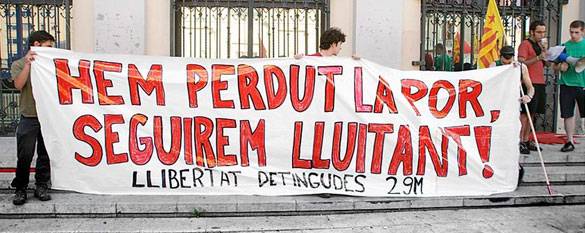 HEM PERDUT LA POR,
SEGUIREM LLUITANT!
LLIBERTAT DETINGUDES 29M